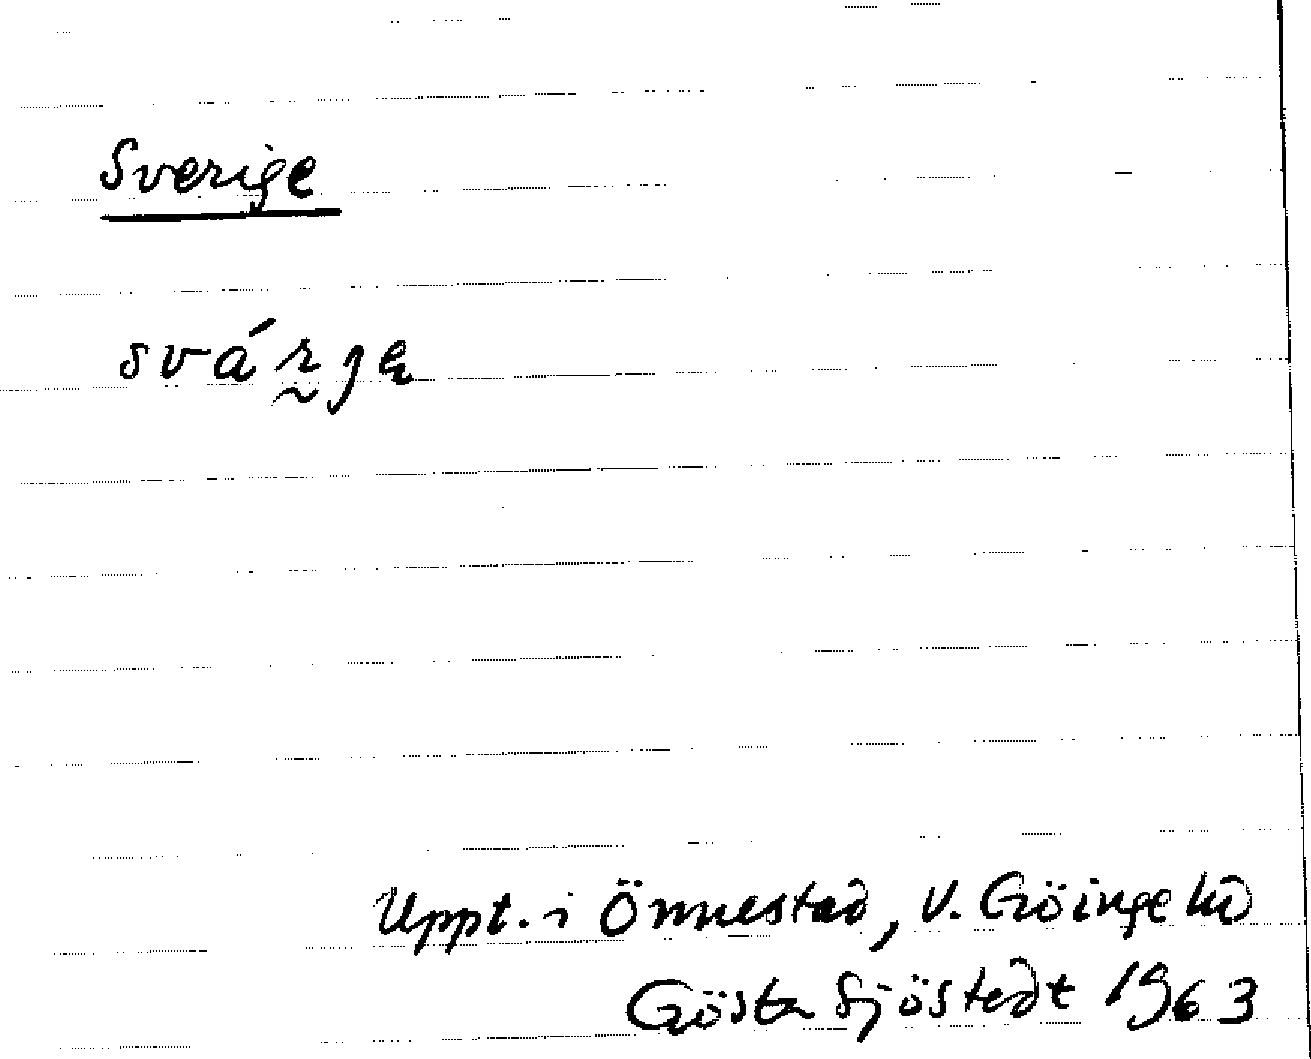 Sverige
svár̰ge
Uppt. i Önnestad, V. Göinge hd
Gösta Sjöstedt 1963